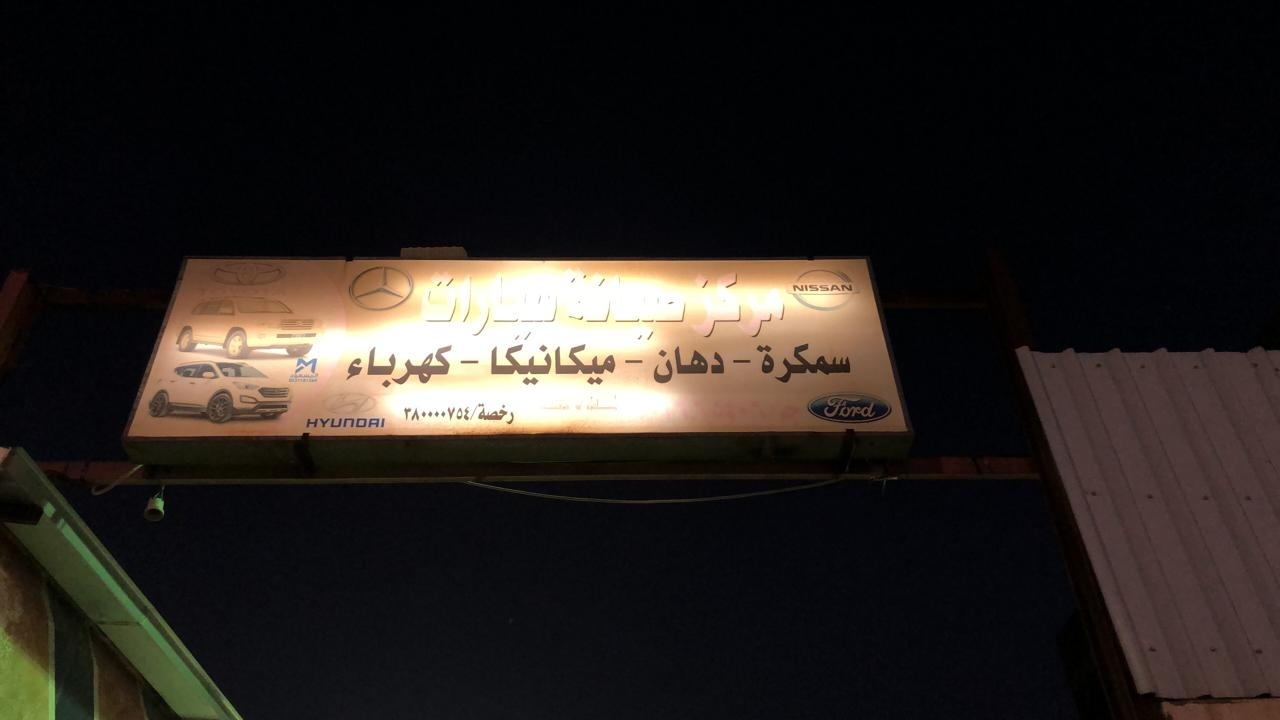 مركز صيانة سيارات
NISSAN
سمكرة - دهان - ميكانيكا - كهرباء
رخصة/٣٨٠٠٠٠٧٥٤
Ford
HYUNDAI